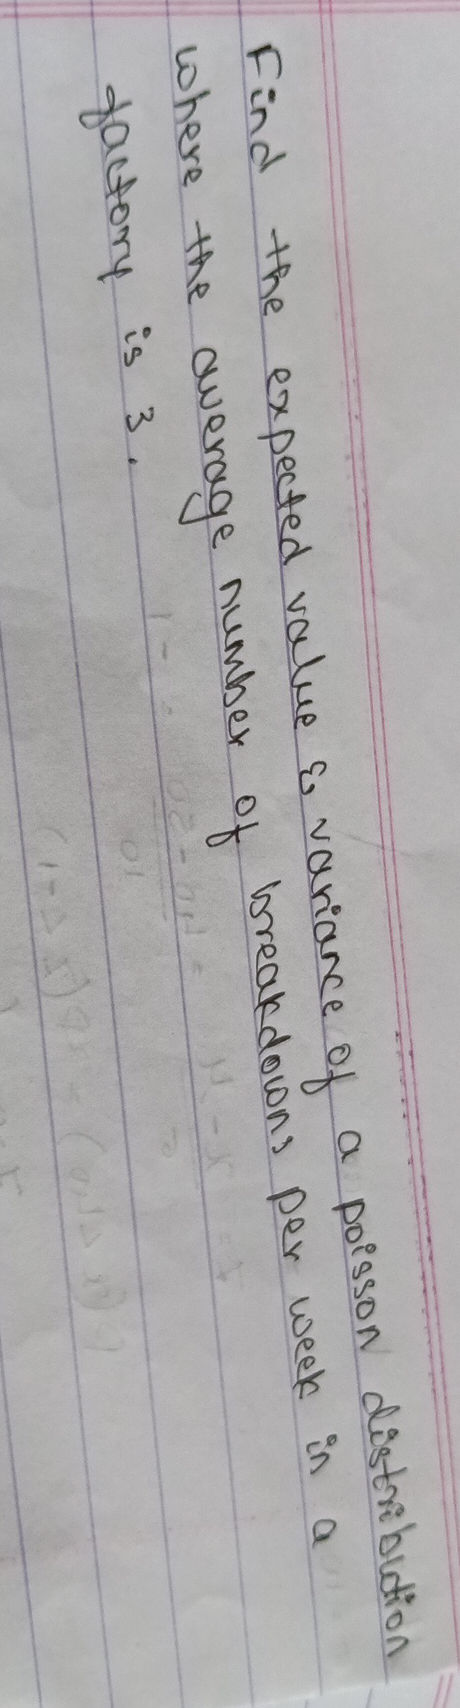 Find the expected value & variance of a poisson distribution
where the average number of breakdowns per week in a
factory is 3.